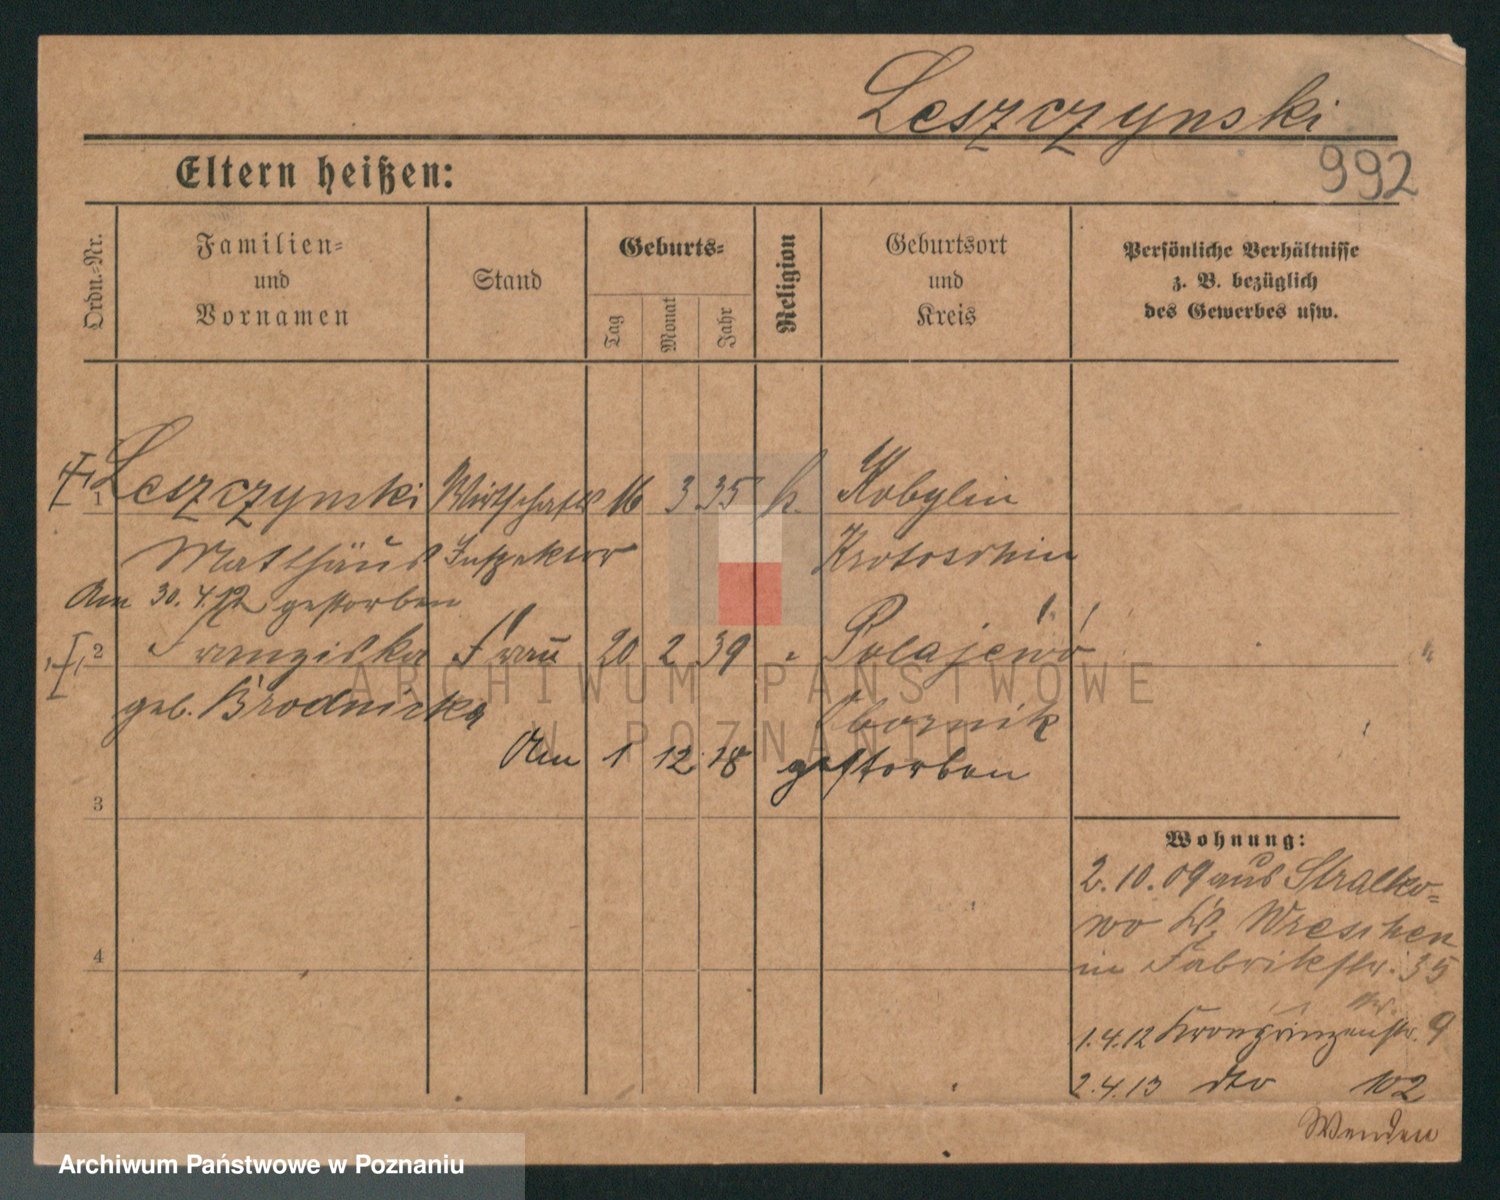 Leszczynski
992
Eltern heißen:
Ordn.-Nr.
Familien- und Vornamen
Stand
Geburts-
Tag
Monat
Jahr
Religion
Geburtsort und Kreis
Persönliche Verhältnisse
z. B. bezüglich
des Gewerbes usw.
1 Leszczynski Wirtschafts 16 3 35 k. Kobylin
Matthäus Inspektor Krotoschin
Am 30.4.12 gestorben
2 Franziska Frau 20 2 39 " Polajewo
geb. Brodnicka Obornik
Am 1 12 18 gestorben
3
4
Wohnung:
2.10.09 aus Stralko=
wo Kr. Wreschen
in Fabrikstr. 35
1.4.12 Kronprinzenstr. 9
2.4.13 dto 102
Wenden
ARCHIWUM PAŃSTWOWE
W POZNANIU
Archiwum Państwowe w Poznaniu